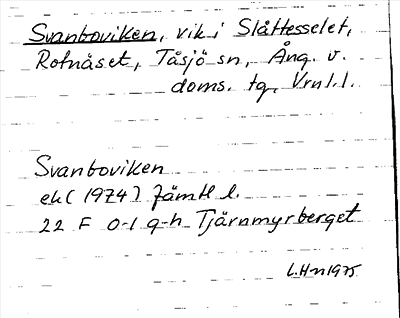 Svanboviken, vik i Slåttesselet,
Rotnäset, Tåsjö sn, Ång. v.
doms. tg, Vrnl.l.
Svanboviken
ek (1974) Jämtl l.
22 F 0-1 g-h Tjärnmyrberget
L.Hn 1975